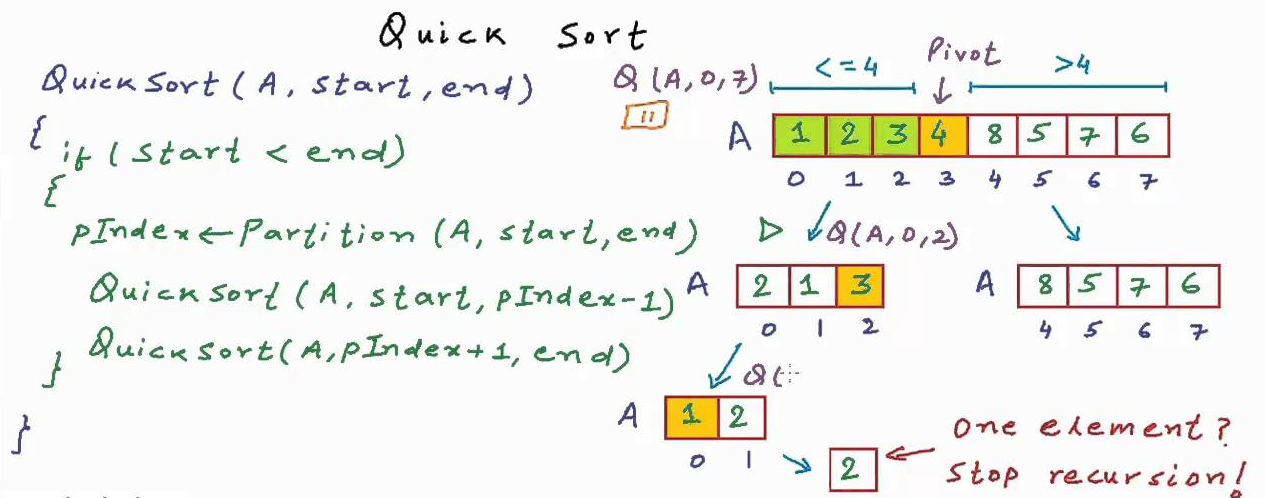 Quick Sort
QuickSort(A, start, end)
{
if (start < end)
{
pIndex←Partition (A, start, end)
QuickSort(A, start, pIndex-1)
QuickSort(A, pIndex+1, end)
}
}
Q(A,0,7)
<=4
Pivot
>4
A 1 2 3 4 8 5 7 6
0 1 2 3 4 5 6 7
Q(A,0,2)
A 2 1 3
0 1 2
A 8 5 7 6
4 5 6 7
Q(
A 1 2
0 1
2
One element?
Stop recursion!